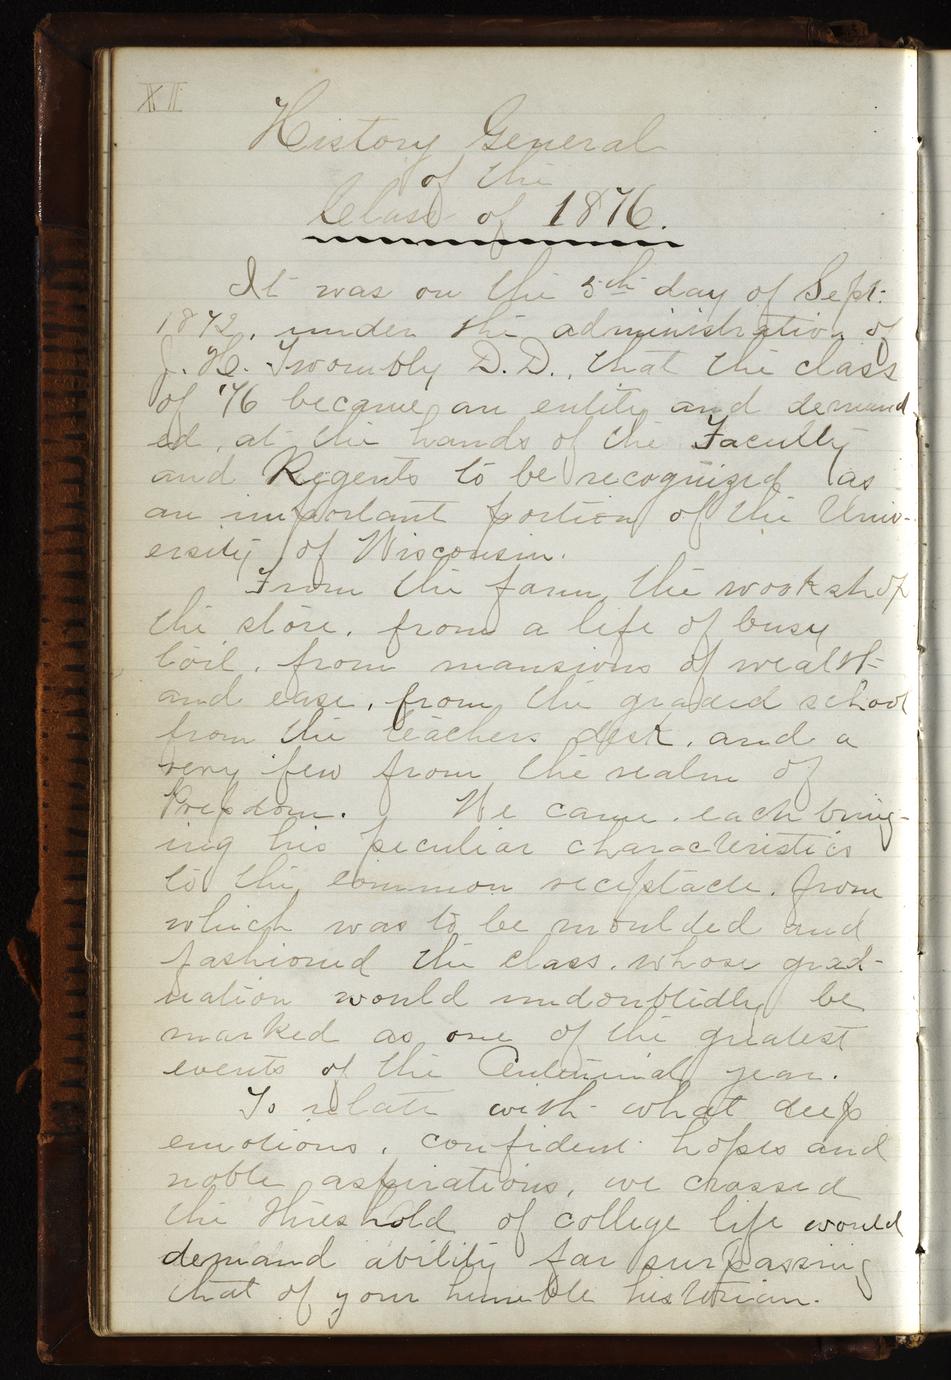 XII
History General
of the
Class of 1876.
It was on the 5th day of Sept.
1872, under the administration of
J. H. Twombly D.D., that the class
of '76 became an entity and demand
ed, at the hands of the Faculty
and Regents to be recognized as
an important portion of the Univ-
ersity of Wisconsin.
From the farm, the workshop
the store, from a life of busy
toil, from mansions of wealth
and ease, from the graded school
from the teachers desk, and a
very few from the realm of
Prepdom. We came, each bring-
ing his peculiar characteristics
to the common receptacle, from
which was to be moulded and
fashioned the class, whose grad-
uation would undoubtidly be
marked as one of the greatest
events of the Centennial year.
To relate with what deep
emotions, confident hopes and
noble aspirations, we crossed
the threshold of college life would
demand ability far surpassing
that of your humble historian.